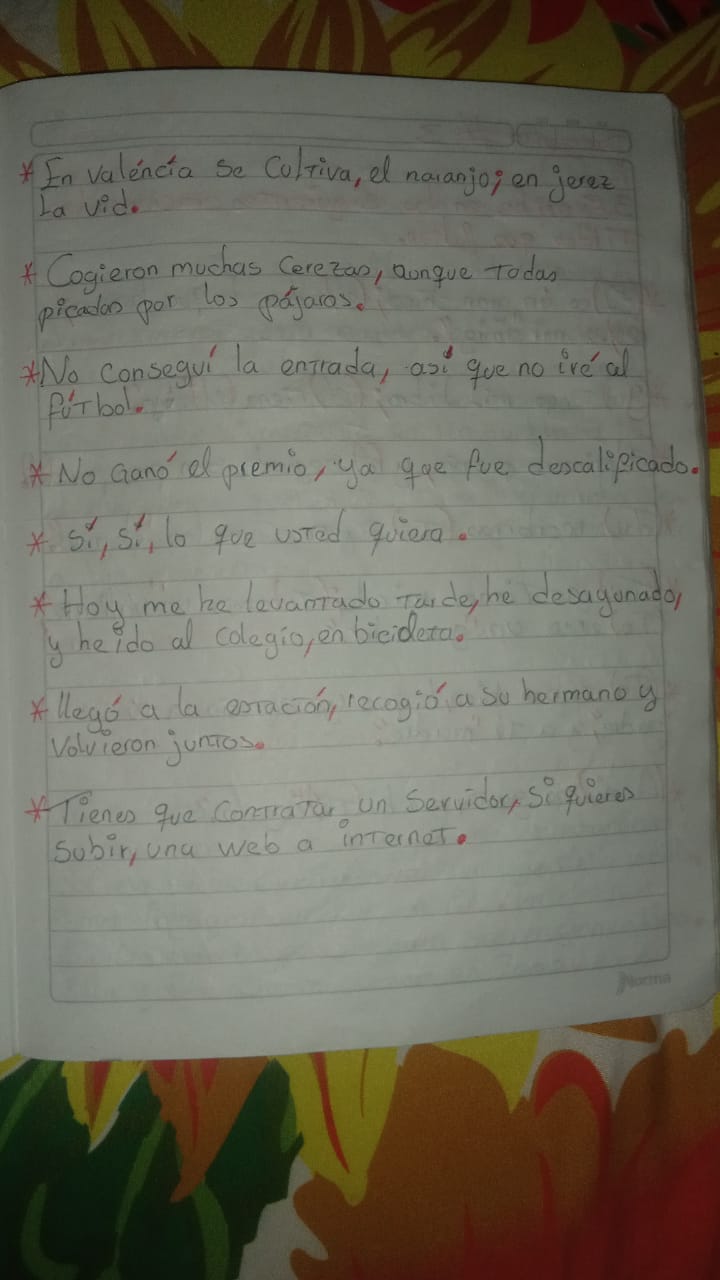 * En valéncia se Cultiva, el naranjo; en jerez
la vid.
* Cogieron muchas Cerezas, aunque Todas
picadas por los pájaros.
* No conseguí la entrada, así que no iré al
fútbol.
* No Ganó el premio, ya que fue descalificado.
* Sí, sí, lo que usted quiera.
* Hoy me he levantado Tarde, he desayunado,
y he ido al colegio, en bicicleta.
* llegó a la estación, recogió a su hermano y
Volvieron juntos.
* Tienes que Contratar un Servidor, Si quieres
Subir, una web a internet.
Norma